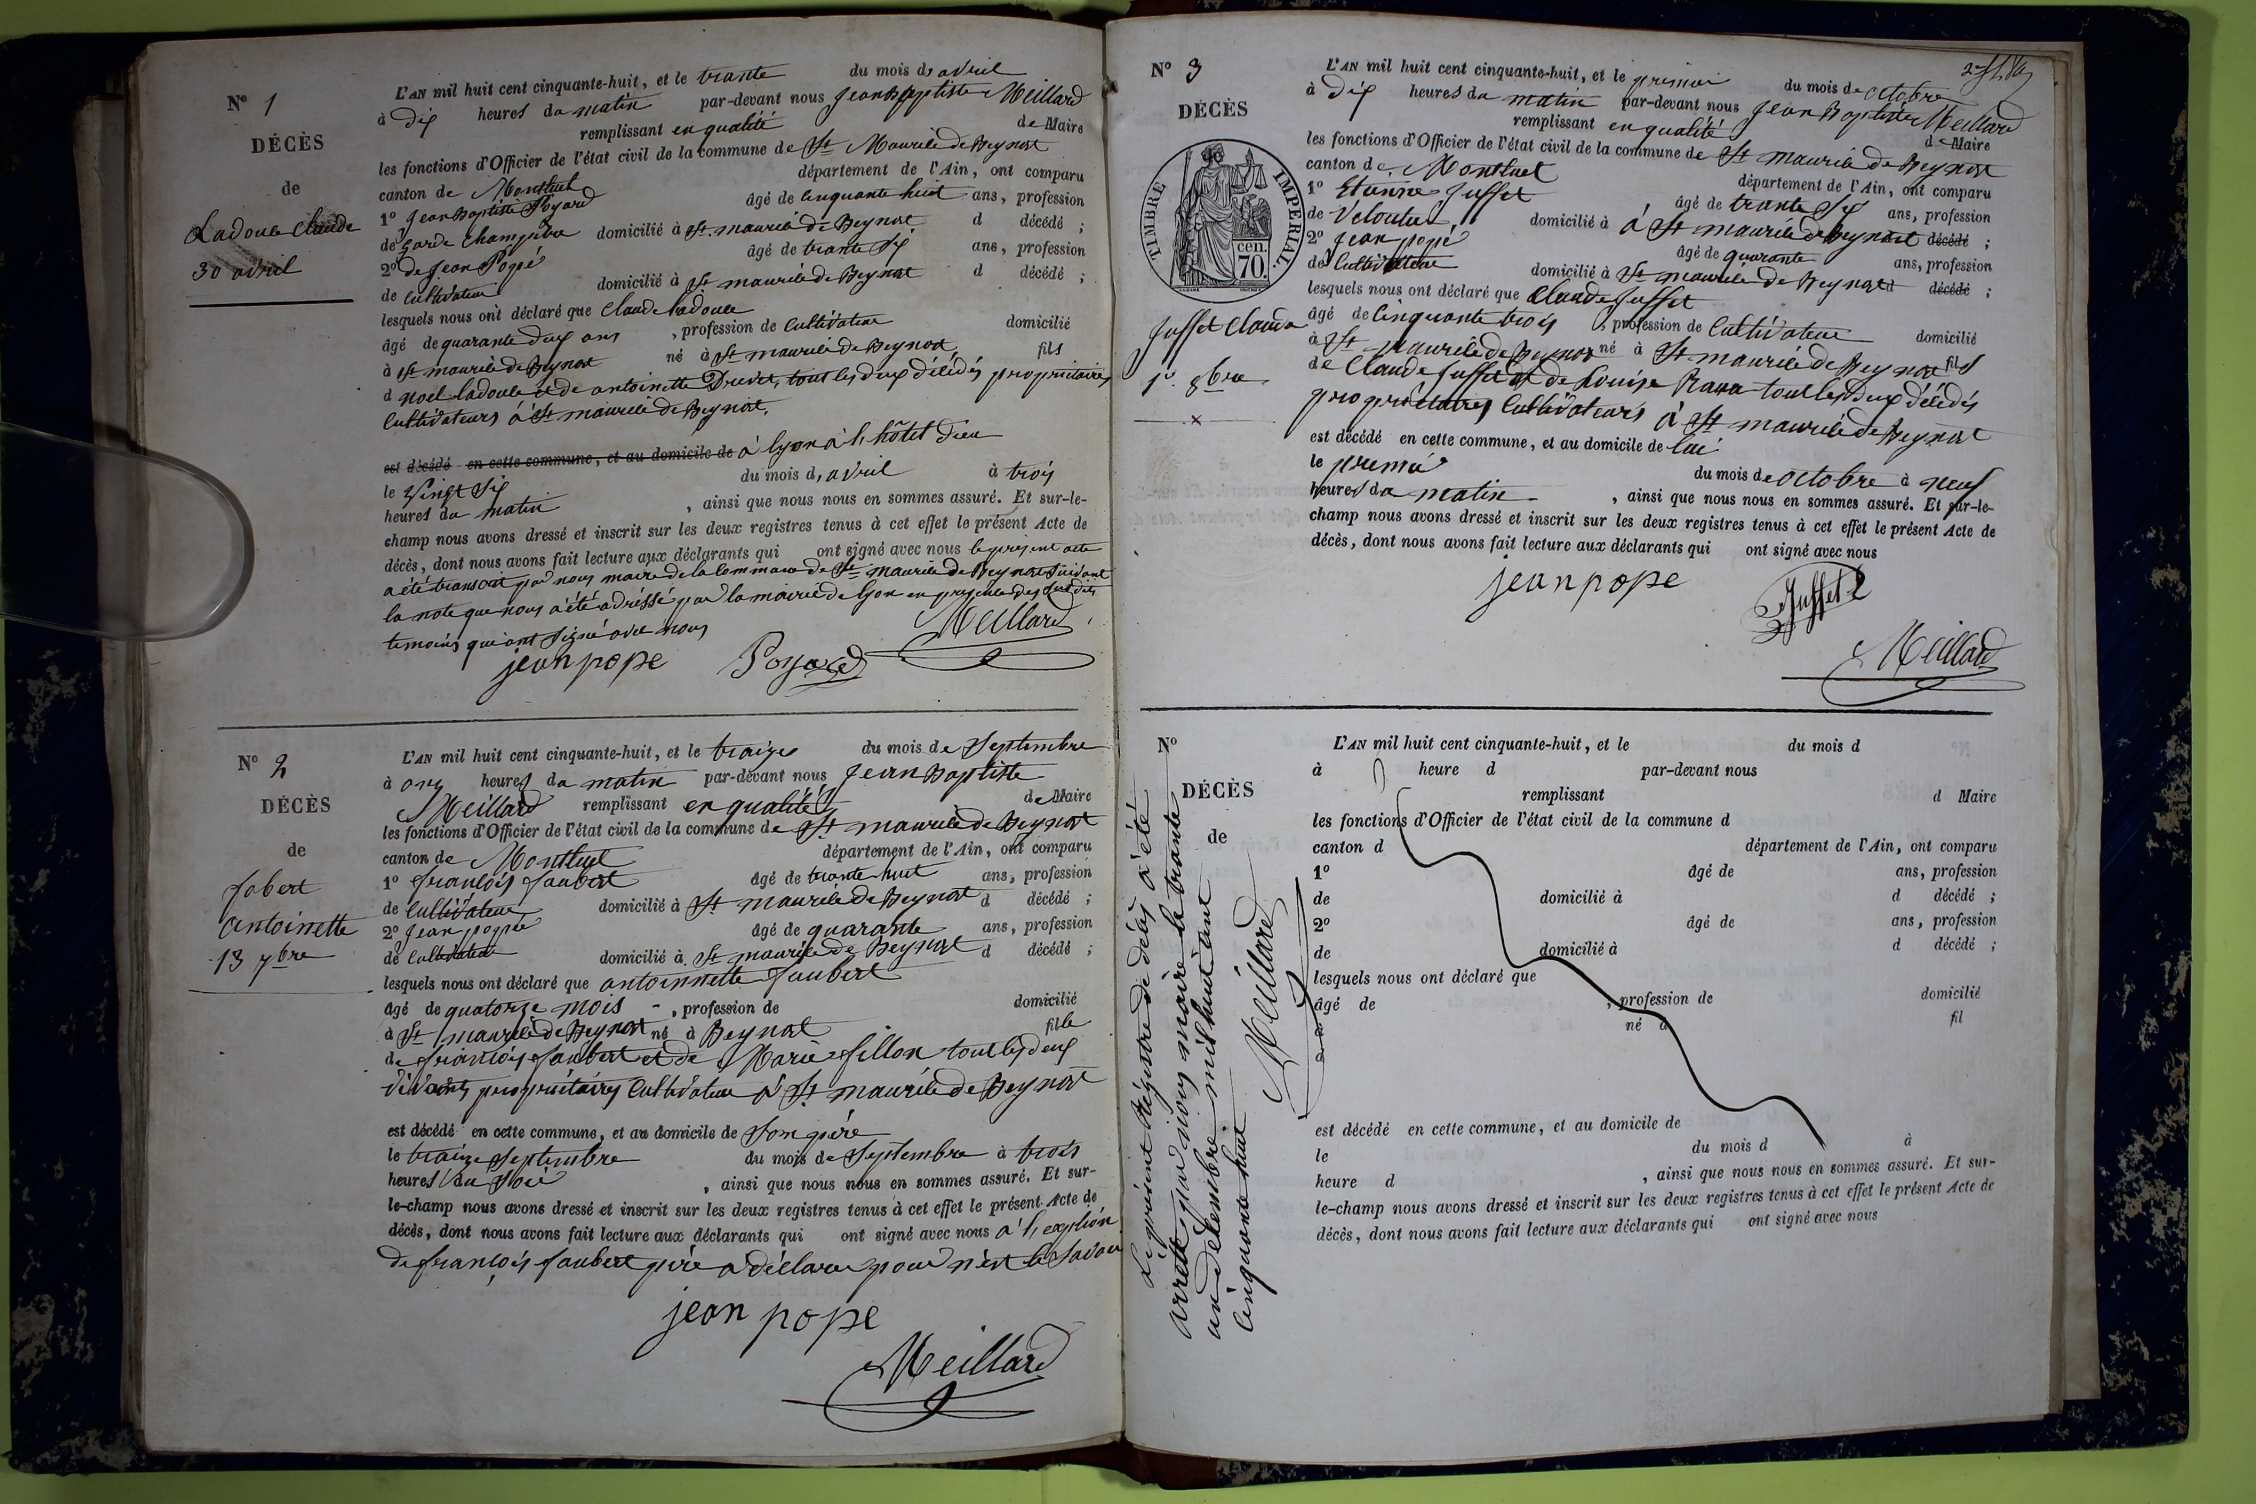 N° 1
DÉCÈS
de
Ladoue Claude
30 avril
L'AN mil huit cent cinquante-huit, et le trante du mois d'avril
à dix heures du matin par-devant nous Jean Baptiste Meillard
remplissant en qualité de Maire
les fonctions d'Officier de l'état civil de la commune de St Maurice de Beynost
canton de Montluel département de l'Ain, ont comparu
1° Jean Baptiste Poyard âgé de cinquante huit ans, profession
de garde champetre domicilié à St maurice de Beynost d décédé ;
2° de Jean Popé âgé de trante six ans, profession
de Cultivateur domicilié à St maurice de Beynost d décédé ;
lesquels nous ont déclaré que Claude Ladoue
âgé de quarante deux ans , profession de Cultivateur domicilié
à St maurice de Beynost né à St maurice de Beynost fils
d noël ladoue et de antoinette Drevet, tout les deux décédés propriétaires
Cultivateurs à St maurice de Beynost.
est décédé en cette commune, et au domicile de à lyon à l'hôtel dieu
le Vingt Six du mois d'avril à trois
heures du matin , ainsi que nous nous en sommes assuré. Et sur-le-
champ nous avons dressé et inscrit sur les deux registres tenus à cet effet le présent Acte de
décès, dont nous avons fait lecture aux déclarants qui ont signé avec nous le présent acte
a été transcrit par nous maire de la Commune de St maurice de Beynost suivant
la note que nous a été adréssé par la mairie de lyon en presence des susdits
temoins qui ont signé avec nous
Meillard
jean pope Poyard
N° 2
DÉCÈS
de
Jobert
Antoinette
13 7bre
L'AN mil huit cent cinquante-huit, et le traize du mois de Septembre
à onz heures du matin par-devant nous Jean Baptiste
Meillard remplissant en qualité de Maire
les fonctions d'Officier de l'état civil de la commune de St maurice de Beynost
canton de Montluel département de l'Ain, ont comparu
1° françois Jaubert âgé de trante huit ans, profession
de Cultivateur domicilié à St maurice de Beynost d décédé ;
2° Jean popée âgé de quarante ans, profession
de Cultivateur domicilié à St maurice de Beynost d décédé ;
lesquels nous ont déclaré que antoinnette Jaubert
âgé de quatorze mois , profession de domicilié
à St maurice de Beynost né à Beynost fille
de françois Jaubert et de Marie fillon tout les deux
Vivants propriétaires Cultivateur à St maurice de Beynost
est décédé en cette commune, et au domicile de Son père
le traize Septembre du mois de Septembre à trois
heures du Soir , ainsi que nous nous en sommes assuré. Et sur-
le-champ nous avons dressé et inscrit sur les deux registres tenus à cet effet le présent Acte de
décès, dont nous avons fait lecture aux déclarants qui ont signé avec nous à l'exption
de françois Jaubert père a déclaré pour n'en le Savoir
jean pope
Meillard
N° 3
DÉCÈS
TIMBRE IMPÉRIAL.
cen.
70.
Juffet Claude
1er 8bre
L'AN mil huit cent cinquante-huit, et le premier du mois de octobre
à dix heures du matin par-devant nous Jean Baptiste Meillard
remplissant en qualité d Maire
les fonctions d'Officier de l'état civil de la commune de St maurice de Beynost
canton de Montluel département de l'Ain, ont comparu
1° Etienne Juffet âgé de trante Six ans, profession
de Veloutier domicilié à à St maurice de Beynost décédé ;
2° Jean popé âgé de quarante ans, profession
de Cultivateur domicilié à St maurice de Beynost d décédé ;
lesquels nous ont déclaré que Claude Juffet
âgé de Cinquante trois , profession de Cultivateur domicilié
à St maurice de Beynost né à St maurice de Beynost fils
de Claude Juffet et de Louise Rava tout les deux décédés
propriétaires Cultivateurs à St maurice de Beynost
est décédé en cette commune, et au domicile de lui
le premié du mois de octobre à neuf
heures du matin , ainsi que nous nous en sommes assuré. Et sur-le-
champ nous avons dressé et inscrit sur les deux registres tenus à cet effet le présent Acte de
décès, dont nous avons fait lecture aux déclarants qui ont signé avec nous
jean pope
Juffet
Meillard
N°
DÉCÈS
de
Le présent Régistre de décès a été
arretté par nous maire le trante
un décembre mil huit cent
cinquante huit
Meillard
L'AN mil huit cent cinquante-huit, et le du mois d
à heure d par-devant nous
remplissant d Maire
les fonctions d'Officier de l'état civil de la commune d
canton d département de l'Ain, ont comparu
1° âgé de ans, profession
de domicilié à d décédé ;
2° âgé de ans, profession
de domicilié à d décédé ;
lesquels nous ont déclaré que
âgé de , profession de domicilié
à né à fil
d
est décédé en cette commune, et au domicile de
le du mois d à
heure d , ainsi que nous nous en sommes assuré. Et sur-
le-champ nous avons dressé et inscrit sur les deux registres tenus à cet effet le présent Acte de
décès, dont nous avons fait lecture aux déclarants qui ont signé avec nous